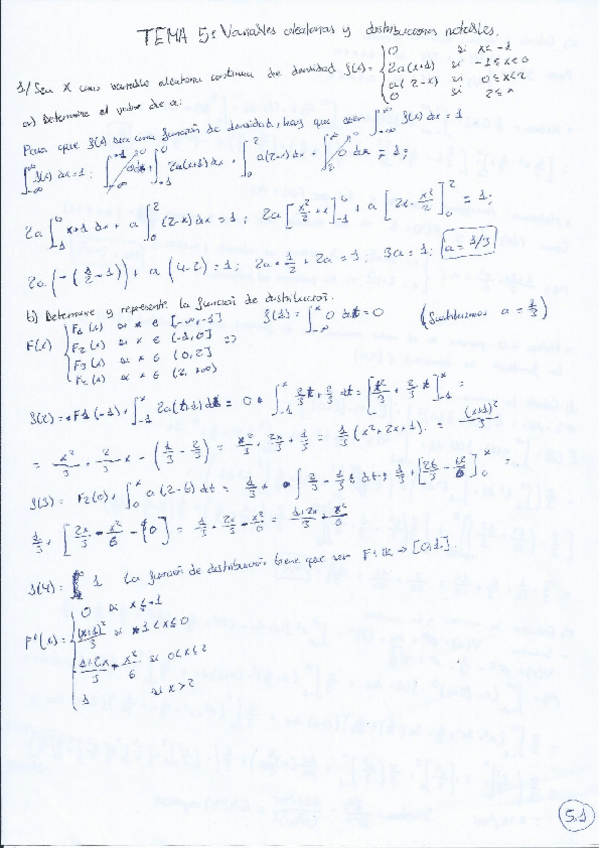 TEMA 5: Variables aleatorias y distribuciones notables.
1/ Sea X una variable aleatoria continua de densidad f(x) = { 0 si x < -1
2a(x+1) si -1 ≤ x < 0
a(2-x) si 0 ≤ x < 2
0 si 2 ≤ x
a) Determine el valor de a:
Para que f(x) sea una función de densidad, hay que ser ∫_{-∞}^{∞} f(x) dx = 1
∫_{-∞}^{∞} f(x) dx = 1; ∫_{-∞}^{-1} 0 dx + ∫_{-1}^{0} 2a(x+1) dx + ∫_{0}^{2} a(2-x) dx + ∫_{2}^{∞} 0 dx = 1;
2a ∫_{-1}^{0} x+1 dx + a ∫_{0}^{2} (2-x) dx = 1; 2a [x²/2 + x]_{-1}^{0} + a [2x - x²/2]_{0}^{2} = 1;
2a (-(1/2 - 1)) + a (4-2) = 1; 2a · 1/2 + 2a = 1; 3a = 1; a = 1/3
b) Determine y represente la función de distribución.
F(x) { F1(x) si x ∈ [-∞, -1]
F2(x) si x ∈ (-1, 0] =>
F3(x) si x ∈ (0, 2]
F4(x) si x ∈ (2, +∞)
f(1) = ∫_{-∞}^{x} 0 dt = 0 (Sustituimos a = 1/3)
f(2) = F1(-1) + ∫_{-1}^{x} 2a(t+1) dt = 0 + ∫_{-1}^{x} 2/3 t + 2/3 dt = [t²/3 + 2/3 t]_{-1}^{x} =
= x²/3 + 2/3 x - (1/3 - 2/3) = x²/3 + 2x/3 + 1/3 = 1/3 (x² + 2x + 1) = (x+1)²/3
f(3) = F2(0) + ∫_{0}^{x} a(2-t) dt = 1/3 + ∫ 2/3 - 1/3 t dt = 1/3 + [2t/3 - t²/6]_{0}^{x} =
1/3 + [2x/3 - x²/6 - 0] = 1/3 + 2x/3 - x²/6 = 1+2x/3 - x²/6
f(4) = 1 La función de distribución tiene que ser F: ℝ → [0,1].
F(x) = { 0 si x ≤ -1
(x+1)²/3 si -1 < x ≤ 0
1+2x/3 - x²/6 si 0 < x ≤ 2
1 si x > 2
5.1